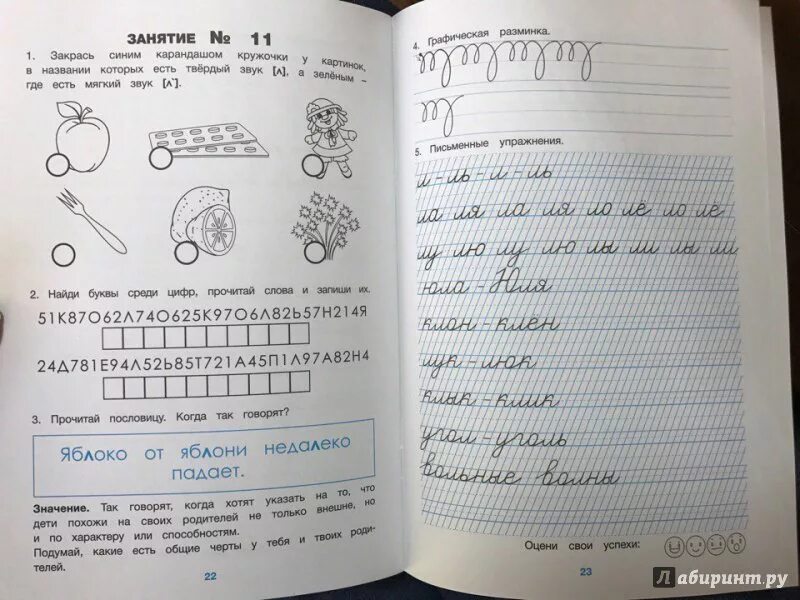 ЗАНЯТИЕ № 11
1. Закрась синим карандашом кружочки у картинок,
в названии которых есть твёрдый звук [л], а зелёным –
где есть мягкий звук [л'].
2. Найди буквы среди цифр, прочитай слова и запиши их.
51К87О62Л74О625К97О6Л82Ь57Н214Я
24Д781Е94Л52Ь85Т721А45П1Л97А82Н4
3. Прочитай пословицу. Когда так говорят?
Яблоко от яблони недалеко
падает.
Значение. Так говорят, когда хотят указать на то, что
дети похожи на своих родителей не только внешне, но
и по характеру или способностям.
Подумай, какие есть общие черты у тебя и твоих роди-
телей.
22
4. Графическая разминка.
5. Письменные упражнения.
л - ль - л - ль
ла ля ла ля ло лё ло лё
лу лю лу лю лы ли лы ли
юла - Юля
клон - клён
лук - люк
клык - клик
угол - уголь
вольные волны
Оцени свои успехи:
23
Лабиринт.ру